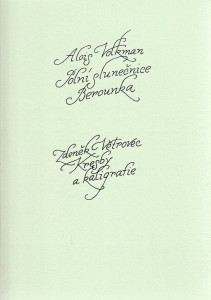 Alois Volkman
Polní slunečnice
Berounka
Zdeněk Větrovec
Kresby
a kaligrafie